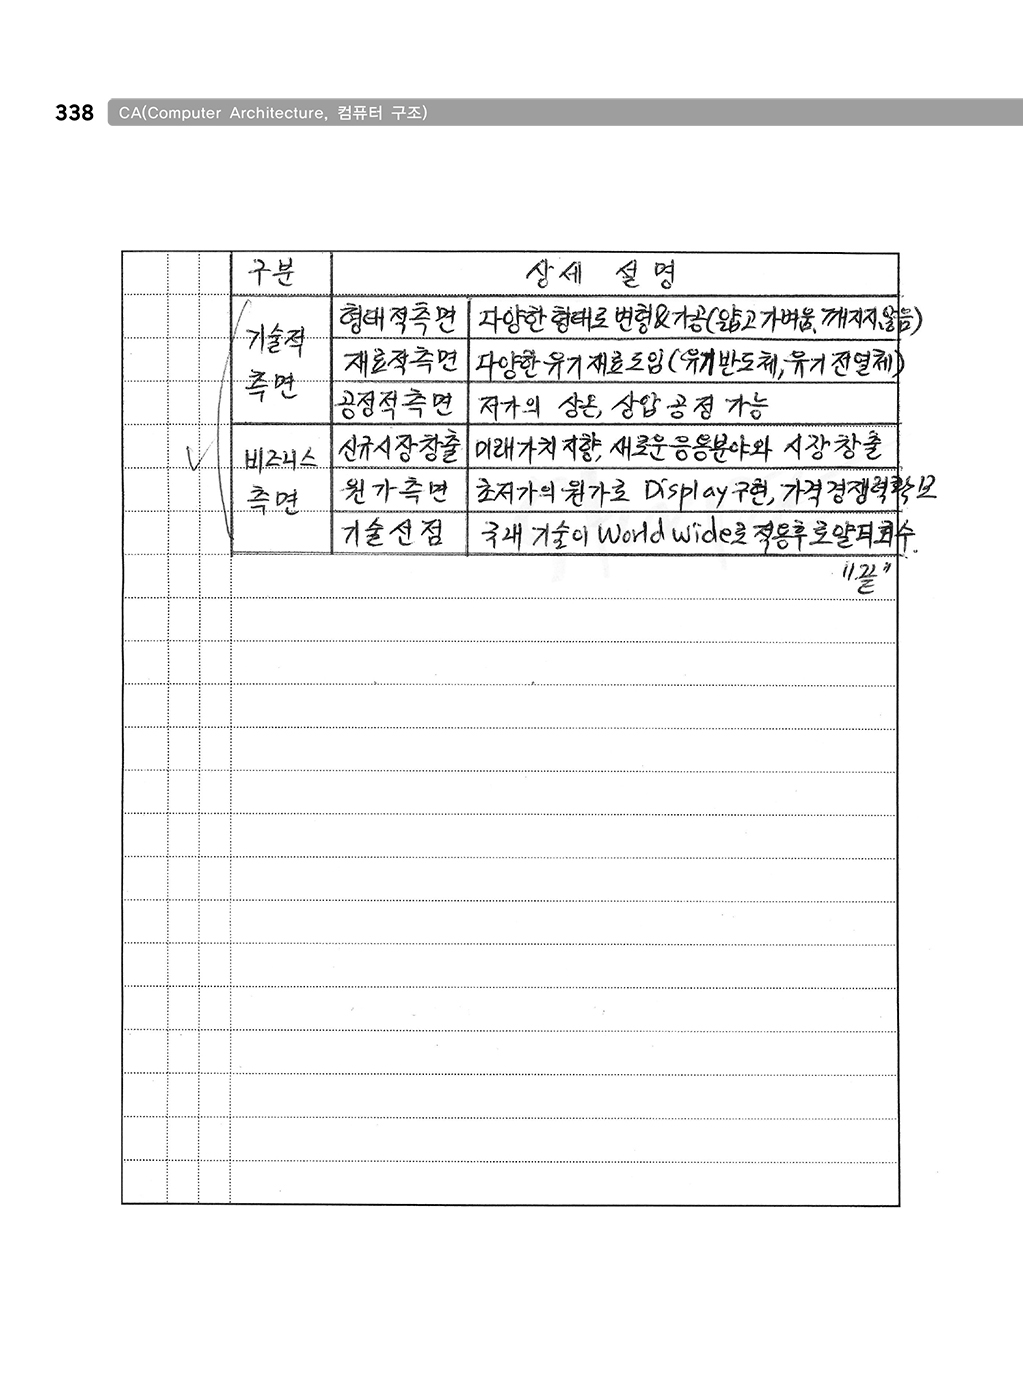 338 CA(Computer Architecture, 컴퓨터 구조)
구분 상세 설명
기술적 측면
형태적측면 다양한 형태로 변형&가공(얇고 가벼움, 깨지지않음)
재료적측면 다양한 유기 재료 도입(유기 반도체, 유기 전열체)
공정적측면 저가의 상온, 상압 공정 가능
비즈니스 측면
신규시장창출 미래가치 지향, 새로운 응용분야와 시장 창출
원가측면 초저가의 원가로 Display 구현, 가격경쟁력확보
기술선점 국내 기술이 World wide로 적용후 로얄티 회수.
"끝"